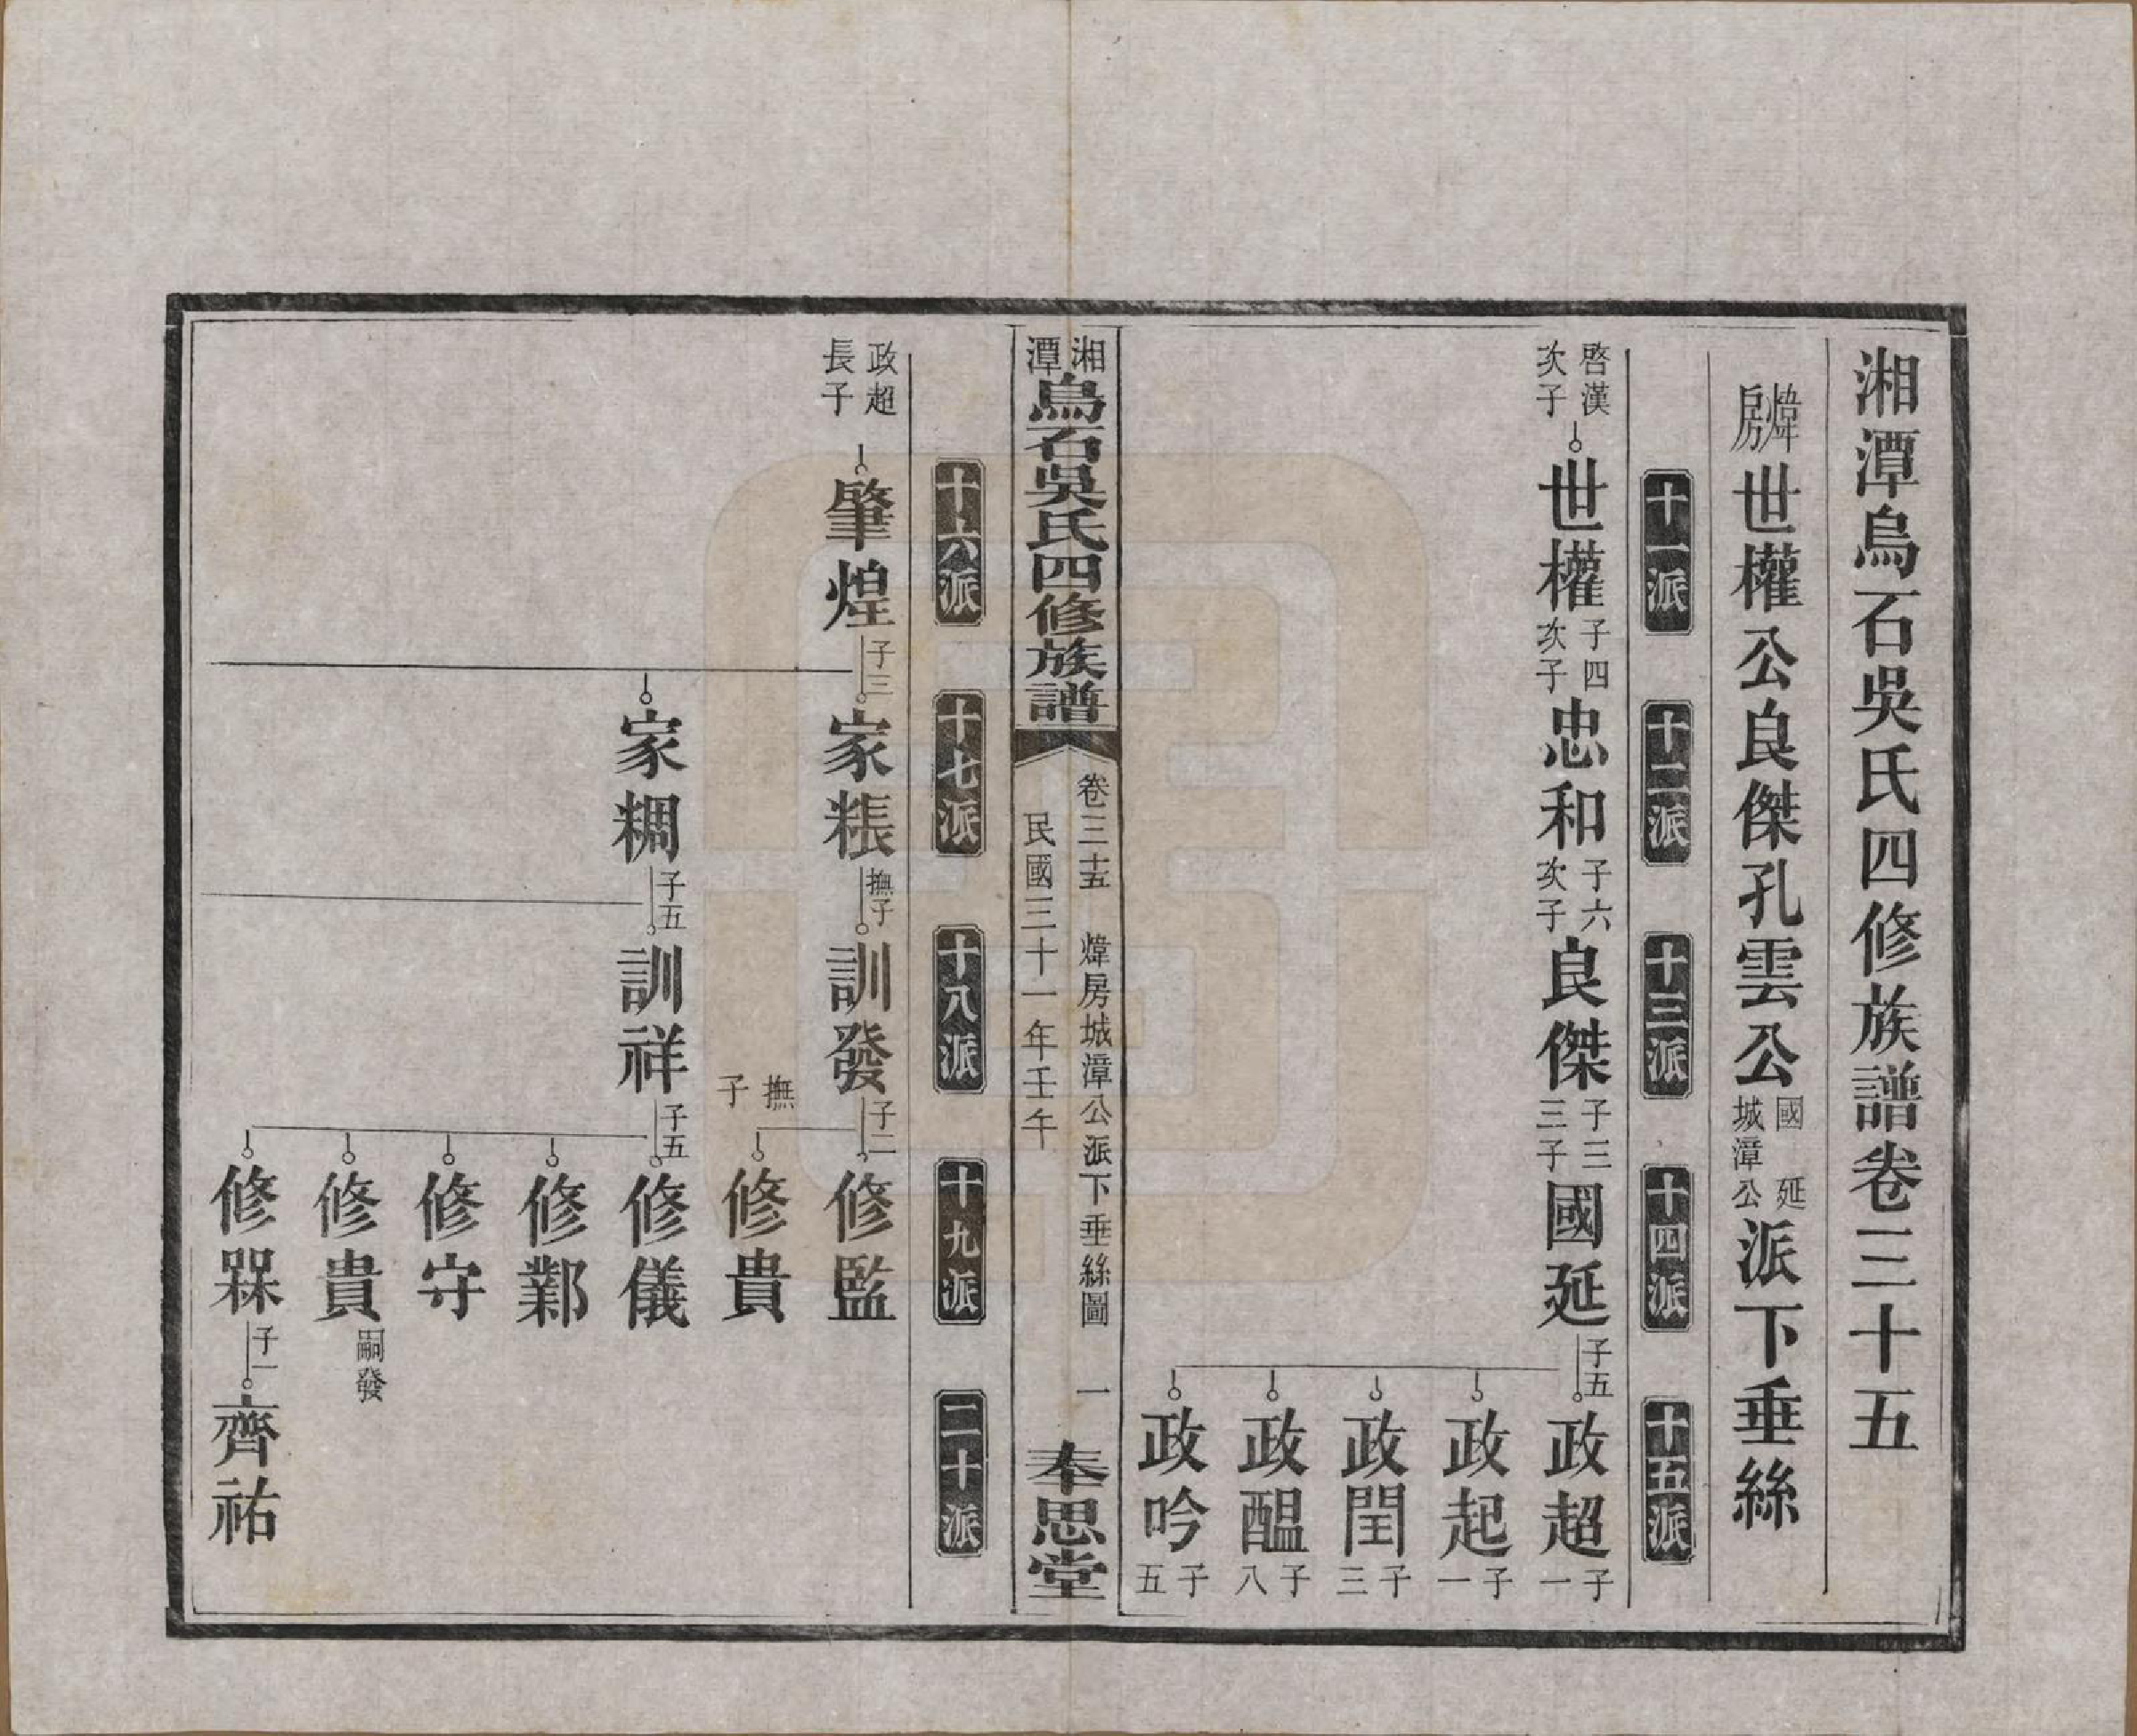 湘潭烏石吳氏四修族譜卷三十五
煒房世權公良傑孔雲公國延城漳公派下垂絲
十一派
十二派
十三派
十四派
十五派
啓漢次子
世權
子四次子
忠和
子六次子
良傑
子三三子
國延
子五
政超
子一
政起
子一
政閏
子三
政醞
子八
政吟
子五
湘潭烏石吳氏四修族譜
卷三十五
煒房城漳公派下垂絲圖
一
民國三十一年壬午
奉思堂
十六派
十七派
十八派
十九派
二十派
政超長子
肇煌
子三
家粻
撫子
訓發
子二
修監
撫子
修貴
家糊
子五
訓祥
子五
修儀
修鄴
修守
修貴
嗣發
修槑
子一
齊祐